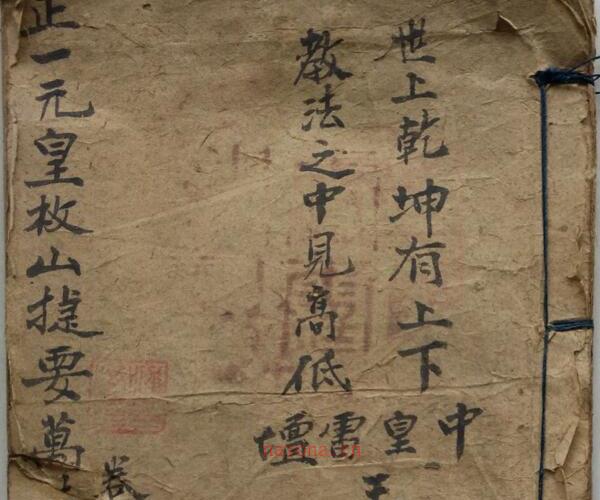 世上乾坤有上下
教法之中見高低
中皇雷壇
正一元皇枚山捷要萬
卷